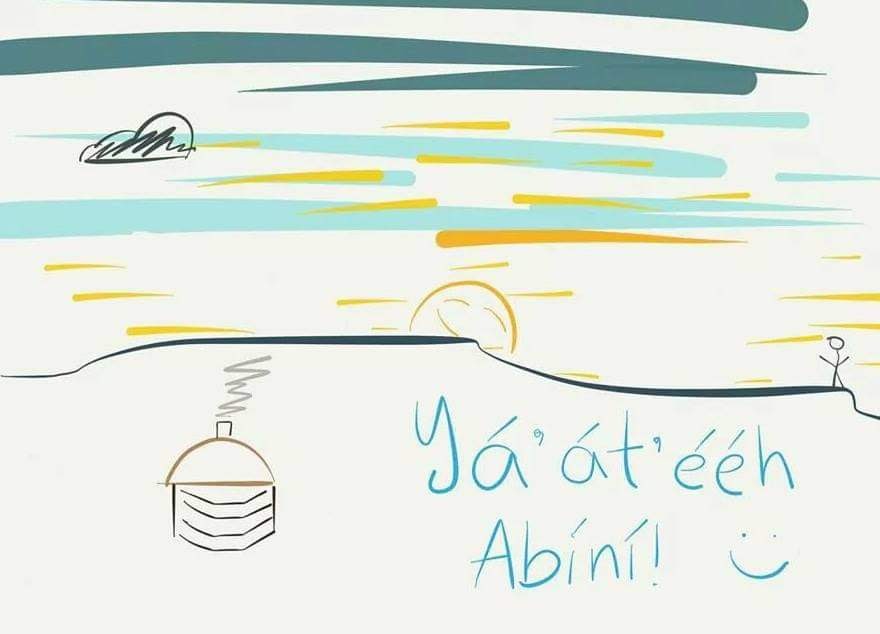 Yá'át'ééh
Abíní!